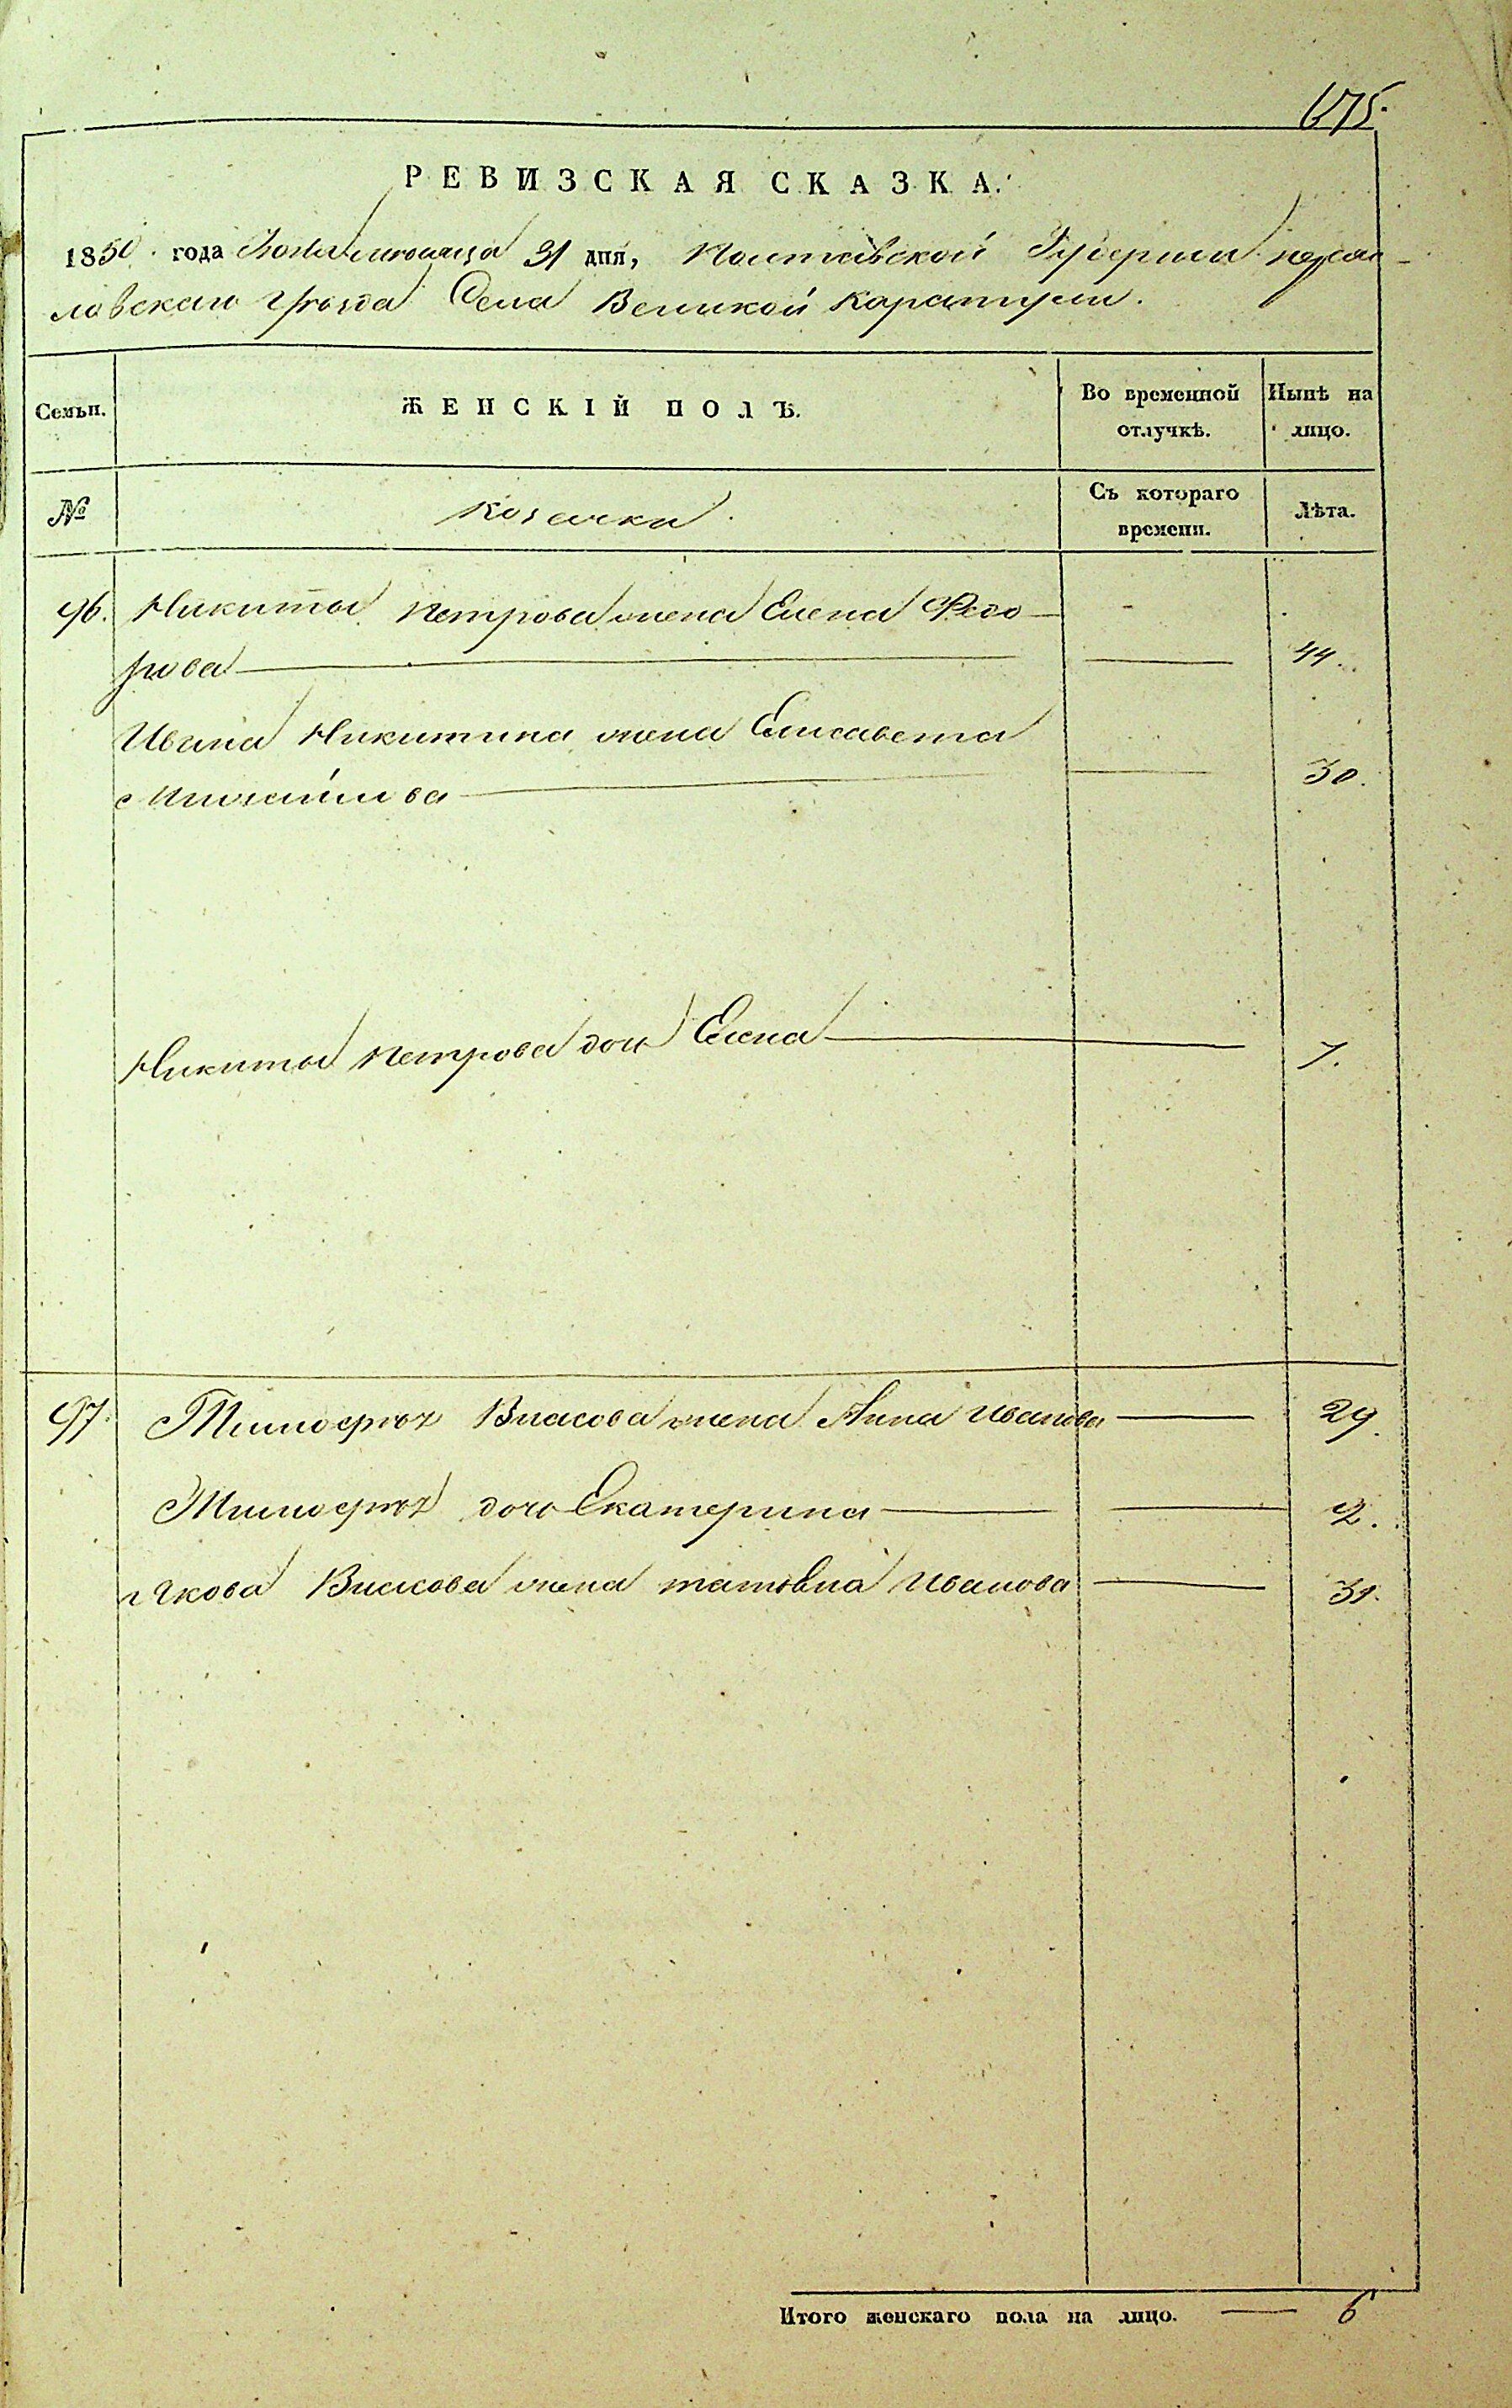 675.
РЕВИЗСКАЯ СКАЗКА.
1850 года мѣсяца 31 дня, Полтавской Губерніи переяс-
лавскаго уѣзда Села Великой Каратули.
Семьи. ЖЕНСКІЙ ПОЛЪ. Во временной отлучкѣ. Нынѣ на лицо.
№ Козачки. Съ котораго времени. Лѣта.
96. Никиты Петрова жена Елена Федо-
рова 44.
Ивана Никитина жена Елисавета
Михайлова 30.
Никиты Петрова дочь Елена 7.
97. Тимофѣя Власова жена Анна Иванова 29.
Тимофѣя дочь Екатерина 2.
Якова Власова жена татьяна Иванова 31.
Итого женскаго пола на лицо. 6